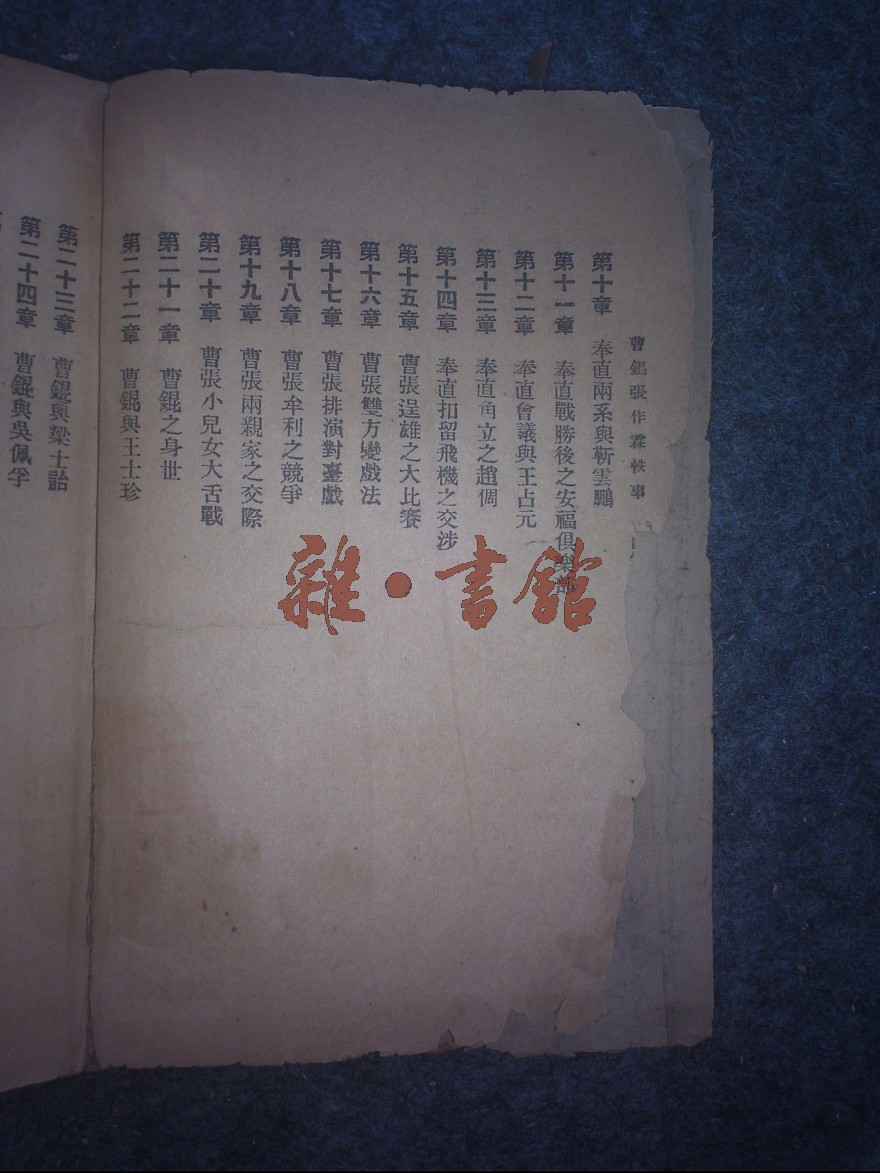 曹錕張作霖軼事
第十章 奉直兩系與靳雲鵬
第十一章 奉直戰勝後之安福俱樂部
第十二章 奉直會議與王占元
第十三章 奉直角立之趙倜
第十四章 奉直扣留飛機之交涉
第十五章 曹張逞雄之大比賽
第十六章 曹張雙方變戲法
第十七章 曹張排演對臺戲
第十八章 曹張牟利之競爭
第十九章 曹張兩親家之交際
第二十章 曹張小兒女大舌戰
第二十一章 曹錕之身世
第二十二章 曹錕與王士珍
第二十三章 曹錕與梁士詒
第二十四章 曹錕與吳佩孚
雜·書館